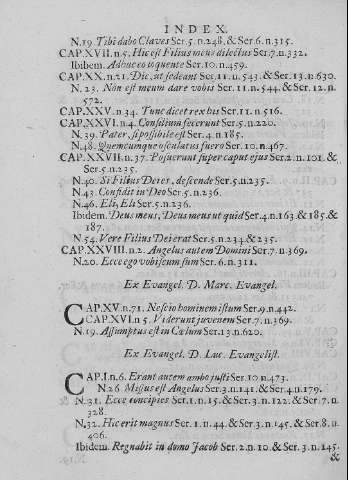 INDEX.
N.19 Tibi dabo Claves Ser.5.n.248.& Ser.6.n.315.
CAP.XVII.n.5. Hic est Filius meus dilectus Ser.7.n.332.
Ibidem. Adhuc eo loquente Ser.10.n.459.
CAP.XX.n.21. Dic, ut sedeant Ser.11.n.543.& Ser.13.n.630.
N.23. Non est meum dare vobis Ser.11.n.544.& Ser.12.n.
572.
CAP.XXV.n.34. Tunc dicet rex his Ser.11.n.516.
CAP.XXVI.n.4. Consilium fecerunt Ser.5.n.220.
N.39. Pater, si possibile est Ser.4.n.185.
N.48. Quemcumque osculatus fuero Ser.10.n.467.
CAP.XXVII.n.37. Posuerunt super caput ejus Ser.2.n.101.&
Ser.5.n.235.
N.40. Si Filius Dei es, descende Ser.5.n.235.
N.43. Confidit in Deo Ser.5.n.236.
N.46. Eli, Eli Ser.5.n.236.
Ibidem. Deus meus, Deus meus ut quid Ser.4.n.163.& 185.&
187.
N.54. Vere Filius Dei erat Ser.5.n.234.& 235.
CAP.XXVIII.n.2. Angelus autem Domini Ser.7.n.369.
N.20. Ecce ego vobiscum sum Ser.6.n.311.
Ex Evangel. D. Marc. Evangel.
CAP.XV.n.71. Nescio hominem istum Ser.9.n.442.
CAP.XVI.n.5. Viderunt juvenem Ser.7.n.369.
N.19. Assumptus est in Cœlum Ser.13.n.620.
Ex Evangel. D. Luc. Evangelist.
CAP.I.n.6. Erant autem ambo justi Ser.10.n.473.
N.26. Missus est Angelus Ser.3.n.141.& Ser.4.n.179.
N.31. Ecce concipies Ser.1.n.15.& Ser.3.n.122.& Ser.7.n.
328.
N.32. Hic erit magnus Ser.1.n.44.& Ser.3.n.145.& Ser.8.n.
406.
Ibidem. Regnabit in domo Jacob Ser.2.n.10.& Ser.3.n.145.
&